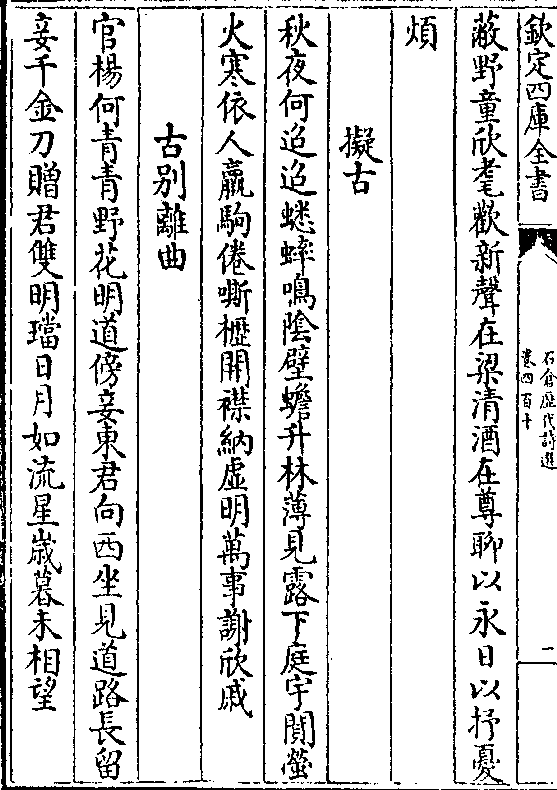 欽定四庫全書
石倉歷代詩選
卷四百十
一
蔽野童欣耄歡新聲在梁清酒在尊聊以永日以抒憂
煩
擬古
秋夜何迢迢蟋蟀鳴陰壁蟾升林薄見露下庭宇闃螢
火寒依人羸駒倦嘶櫪開襟納虛明萬事謝欣戚
古别離曲
官楊何青青野花明道傍妾東君向西坐見道路長留
妾千金刀贈君雙明璫日月如流星嵗暮未相望